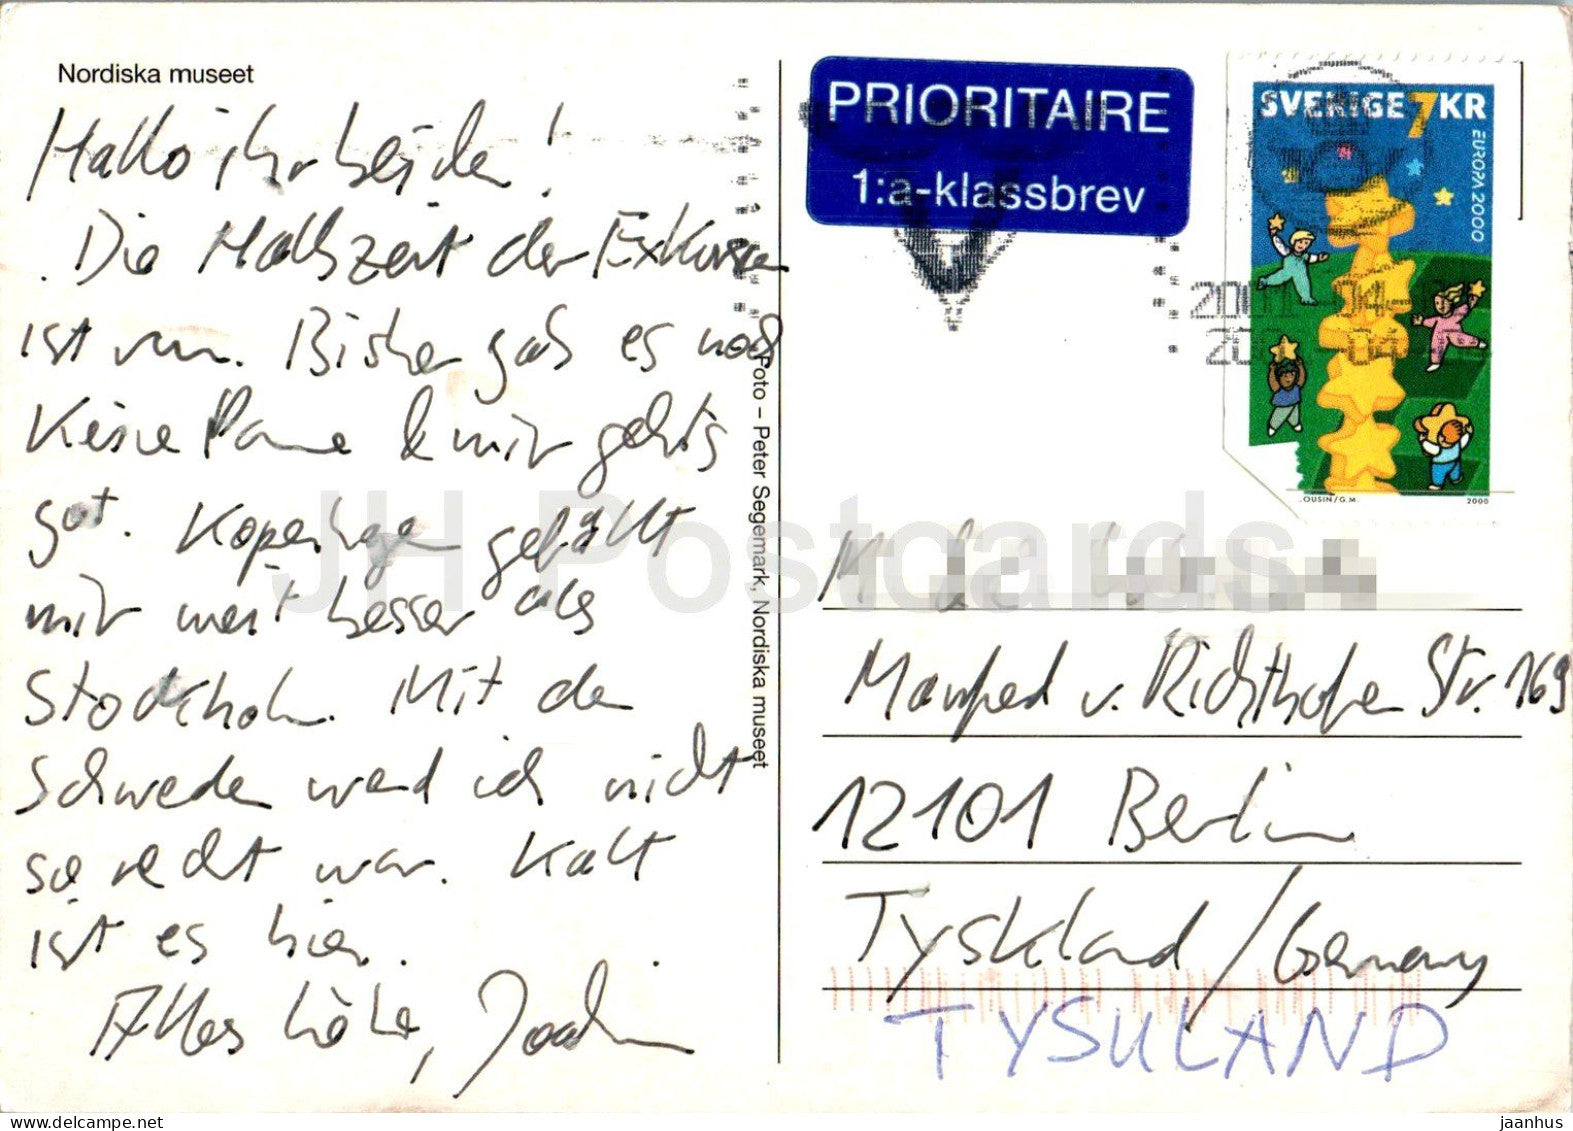 Nordiska museet
Hallo ihr beiden!
Die Halbzeit der Exkursion
ist rum. Bisher gab es noch
keine Panne & mir geht's
gut. Kopenhagen gefällt
mir weit besser als
Stockholm. Mit den
Schweden werd ich nicht
so recht warm. Kalt
ist es hier.
Alles Liebe, Joachim
Foto – Peter Segemark, Nordiska museet
PRIORITAIRE
1:a-klassbrev
SVERIGE 7KR
EUROPA 2000
2001 04
04
OUSIN/G.M.
2000
Manfred v. Richthofen Str. 169
12101 Berlin
Tyskland/Germany
TYSKLAND
JH Postcards
jaanhus